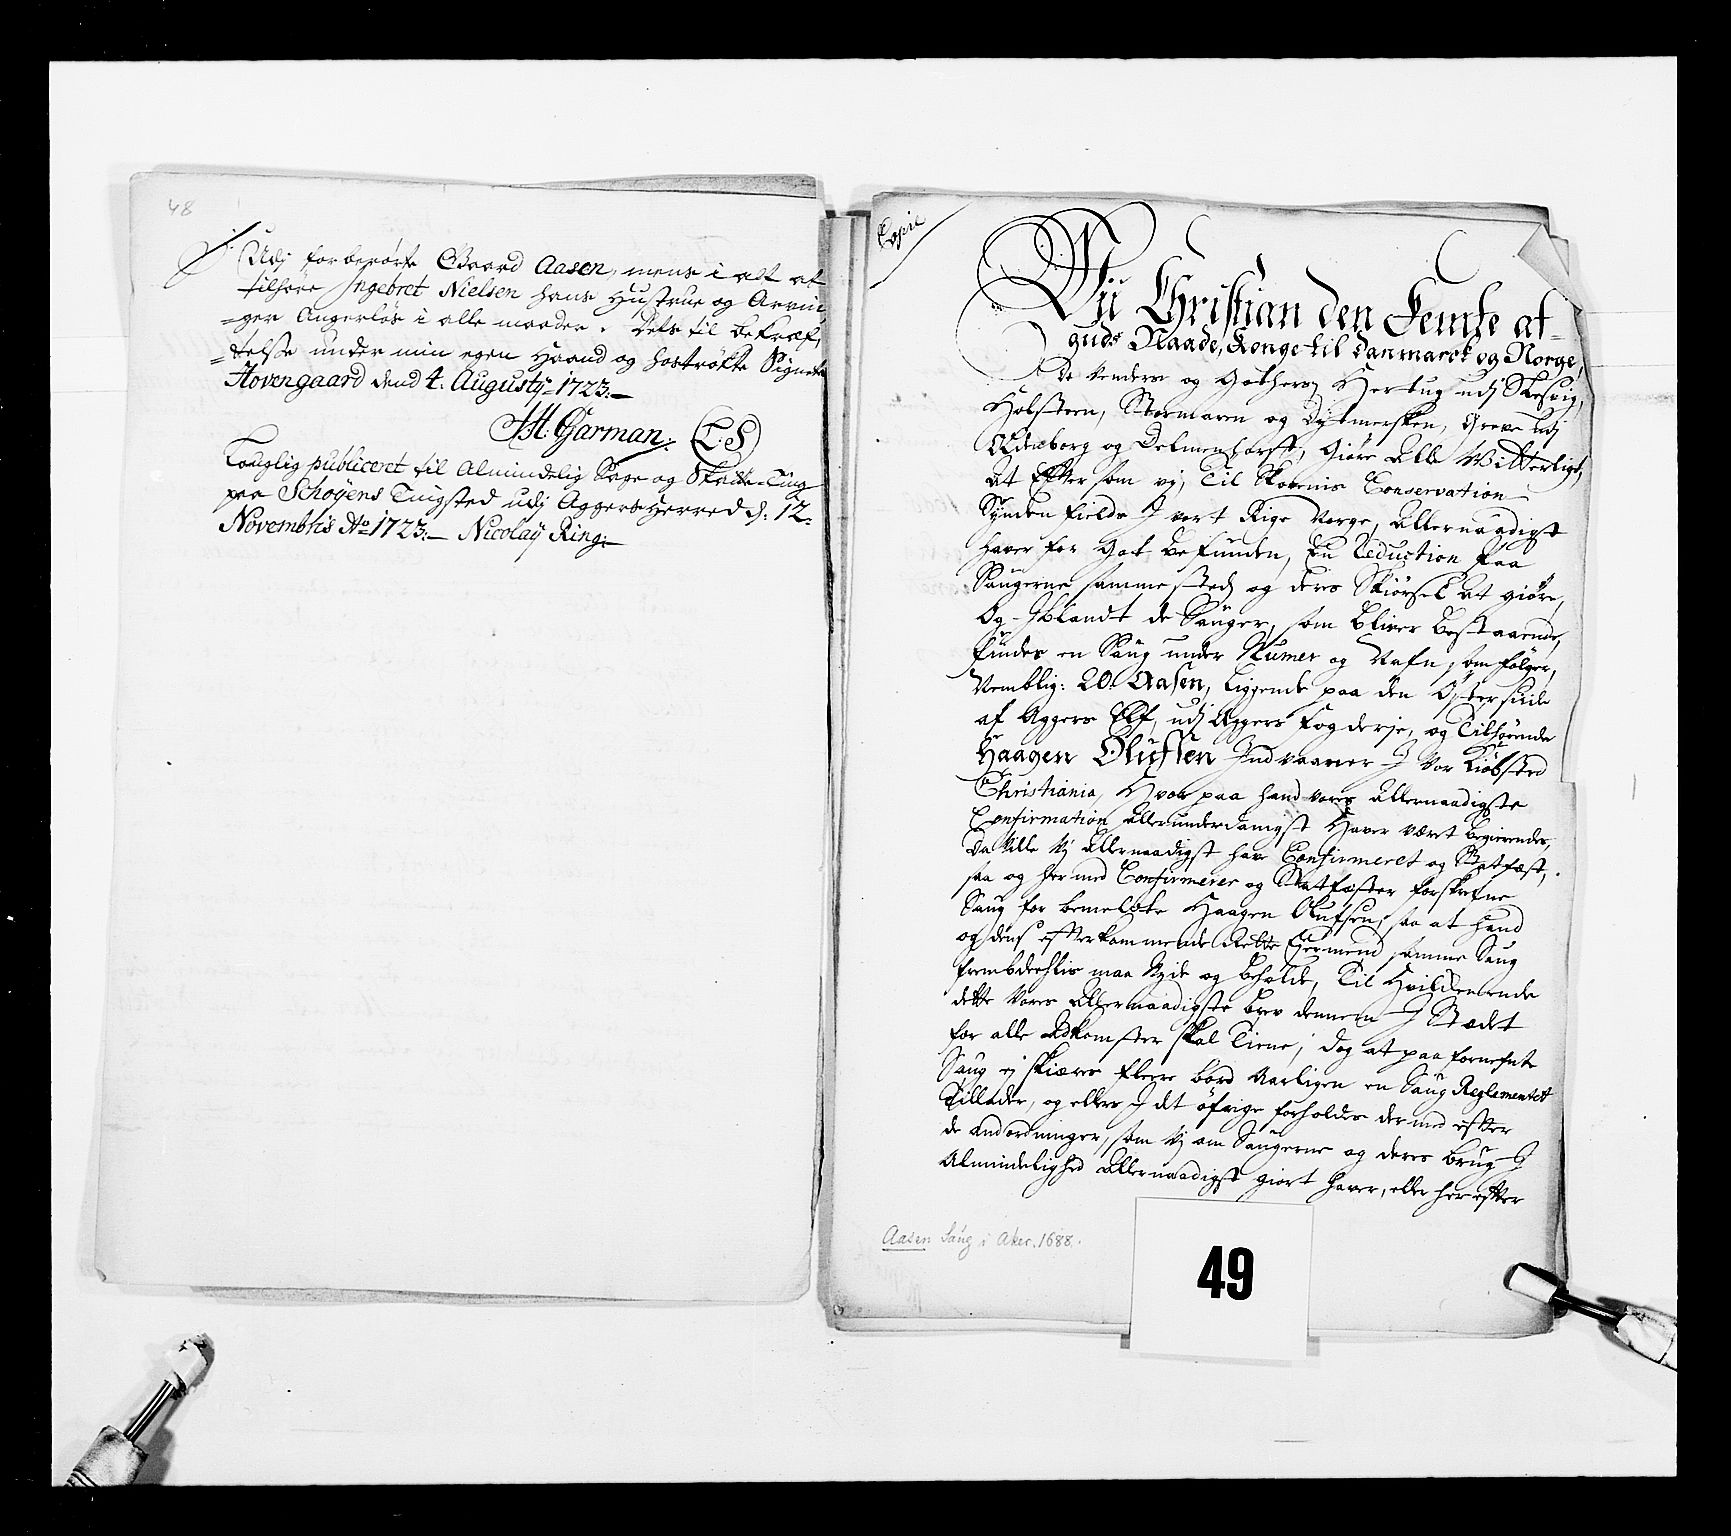 48
Udj forberörte Gaard Aasen, mens i alt at
tilhöre Ingebret Nielsen hans Hustrue og Arvin-
=ger Angerlös i alle maader. Dets til bekræf-
=telse under min egen Haand og hoströkte Signete
Hovengaard dend 4. Augustij 1723.
H: Garman: LS
Louglig publiceret til Almindelig Sage og Skatte-Ting
paa Schoyens Tingsted udj Aggers Herred d: 12.
Novembris Ao 1723. Nicolaÿ Ring:
Copie
Vij Christian den Femte af
guds Naade, Konge til Danmarck og Norge,
De Venders og Gothers, Hertug udj Slesvig,
Holsteen, Stormaren og Dytmersken, Greve udj
Oldenborg og Delmenhorst, Giöre alle Witterligt,
At Efftersom vj, Til Skovenis Conservation
Synden Fields I vort Rige Norge, allernaadigst
haver for Got befunden, En Reduction paa
Saugerne sammesteds og deres Skiörsel at giöre,
Og Iblandt de Sauger, som bliver bestaaende,
findes en Saug under Numer og Nafn som fölger,
Nemblig: 20. Aasen, liggende paa den Östersiide
af Aggers Elf, udj Aggers Fogderje, og Tilhörende
Haagen Oluffsen Indvaaner I vor Kiöbsted
Christiania, Hvor paa hand vores allernaadigste
Confirmation allerunderdanigst Haver været begierendes,
Da ville Vj allernaadigst have Confirmeret og Statfæst,
saa og hermed Confirmerer og Statfæster forskrefne
Saug for bemelote Haagen Olufsen, saa at hand
og dends efterkommende Rette Eyermend samme Saug
frembdeehlis maa Nyde og beholde, Til Hvilchen ende
dette Vores Allernaadigste brev dennem I Stædet
for alle Adkomster skal Tiene; dog at paa fornefnte
Saug ej skiæres fleere bord Aarligen en Saug Reglementet
Tillader, og ellers I det öfrige forholdes dermed efter
de Anordninger, som Vj om Saugerne og deres brug I
Almindelighed allernaadigst giort haver, eller herefter
Aasen Saug i Aker. 1688.
49